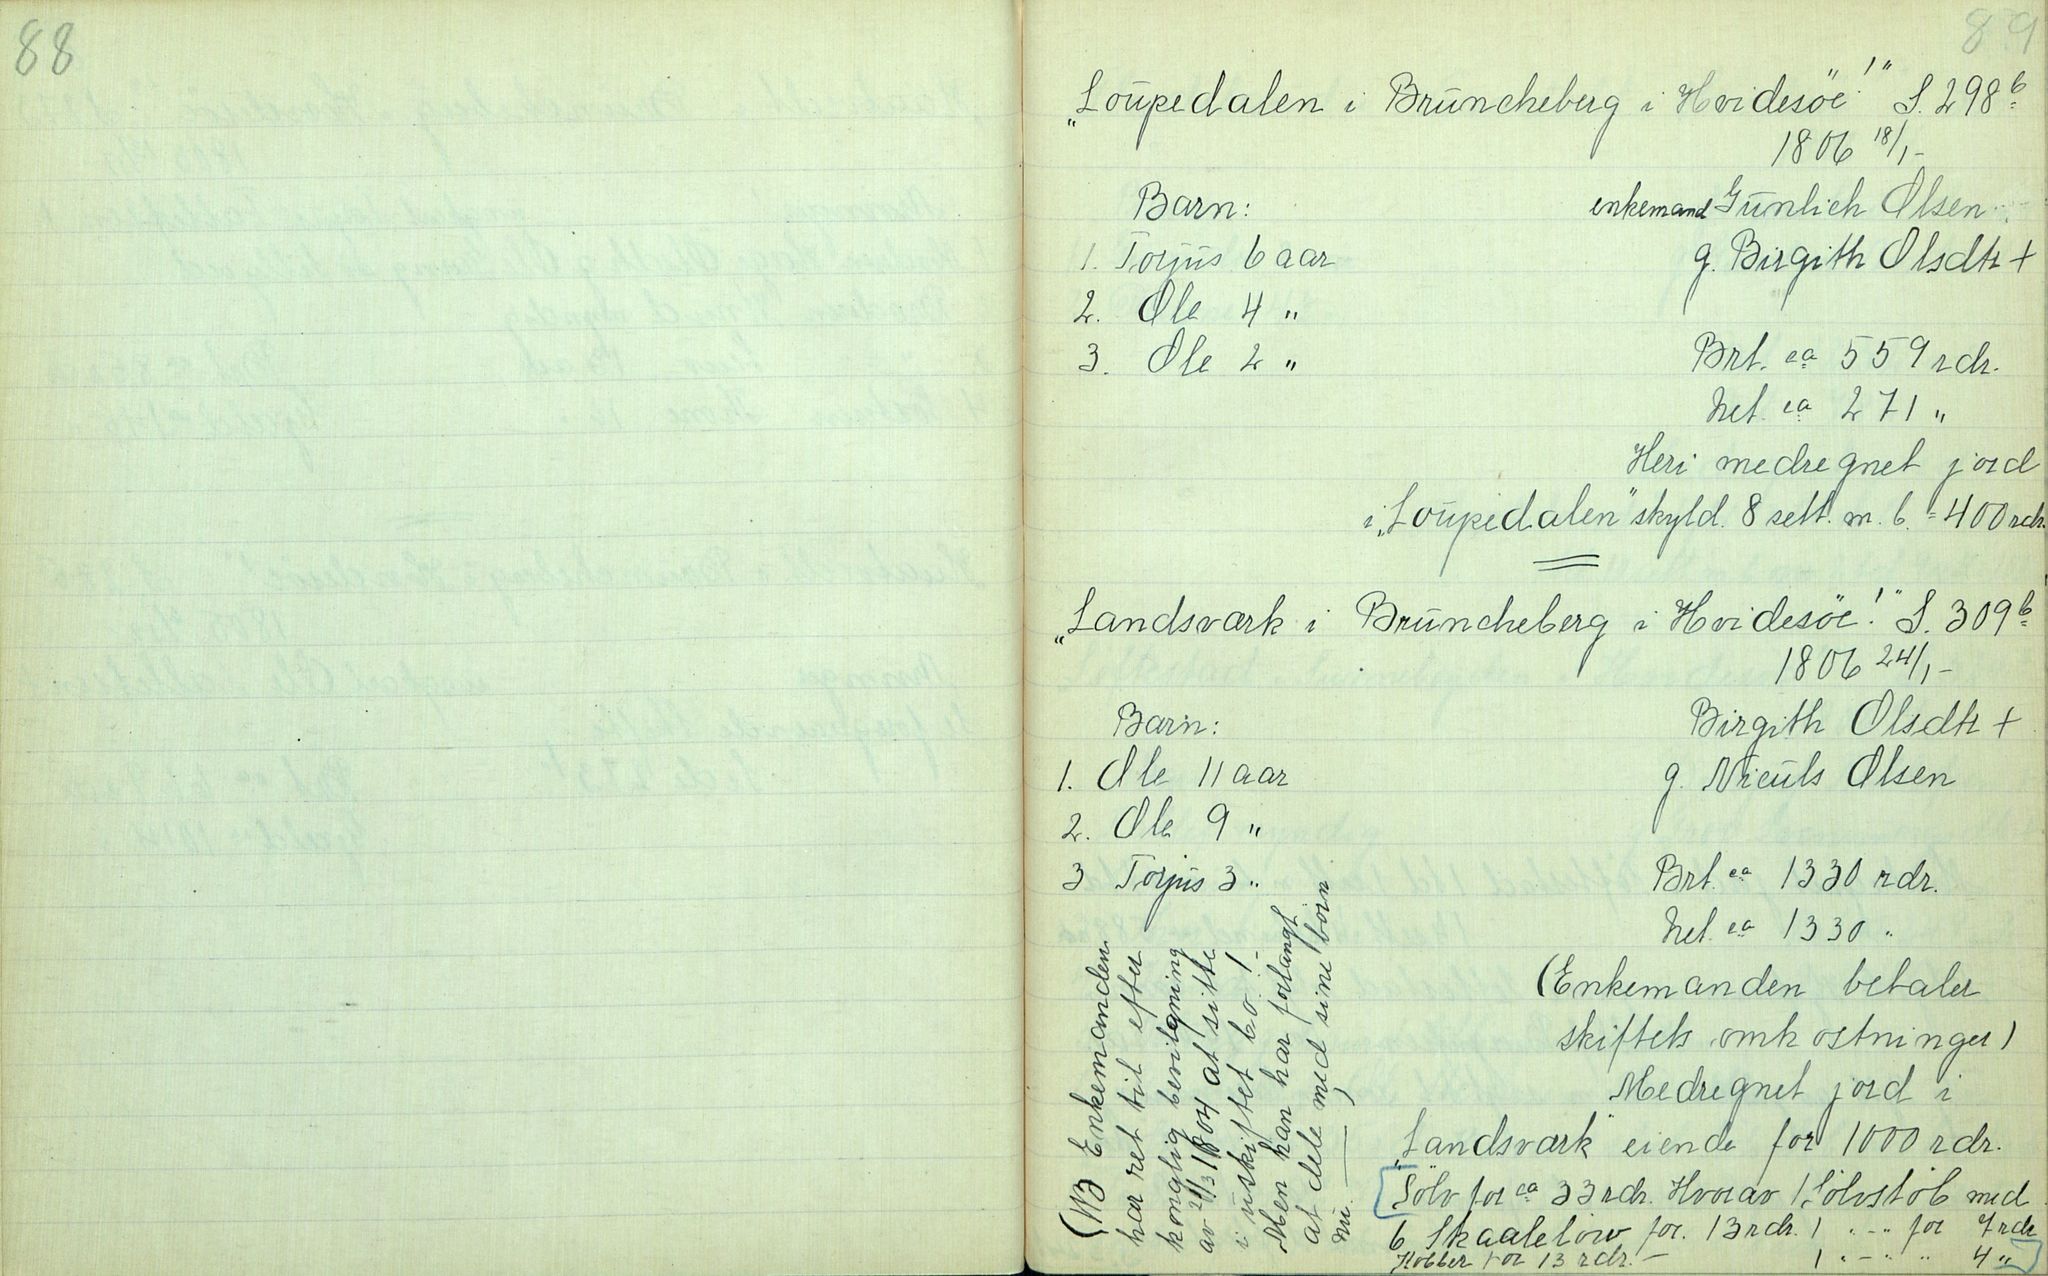 88
89
„Loupedalen i Brüncheberg i Hvidesöe!" S. 298 b
1806 18/1 -
Barn:
enkemand Günlich Olsen
1. Torjüs 6 aar
g. Birgith Olsdtr +
2. Ole 4 "
3. Ole 2 "
Brt. ca 559 rdr.
Net. ca 271 "
Heri medregnet jord
i „Loupedalen" skyld. 8 sett. m. b. = 400 rdr.
„Landsværk i Brüncheberg i Hvidesöe!" S. 309 b
1806 24/1 -
Barn:
Birgith Olsdtr +
1. Ole 11 aar
g. Nieüls Olsen
2. Ole 9 "
3 Torjüs 3 "
Brt. ca 1330 rdr.
Net. ca 1330 "
(Enkemanden betaler
skiftets omkostninger)
Medregnet jord i
„Landsværk" eiende for 1000 rdr.
[Sölv for ca 33 rdr. Hvorav 1 Sölvstöb med
6 Skaalelöw for 13 rdr. 1 " - " for 7 rdr
Kobber for 13 rdr. - 1 " - " " 4 "]
(NB Enkemanden
har ret til efter
konglig bevilgning
av 21/3 1804 at sitte
i üskiftet bo! -
Men han har forlangt
at dele med sine börn
nü. — )